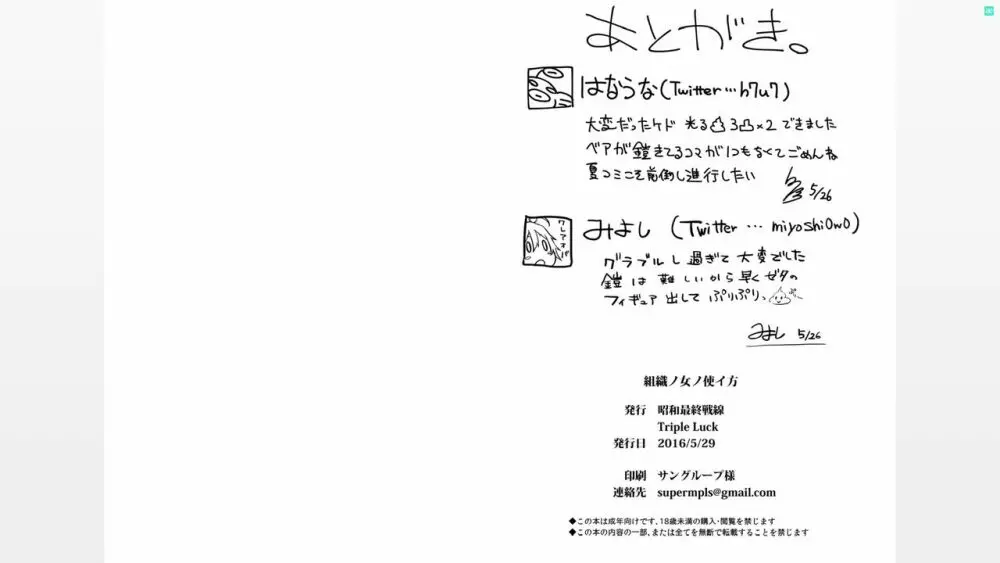 あとがき。
はなうな(Twitter…h7u7)
大変だったケド 光る凸3凸×2 できました
ベアが鎧きてるコマが1つもなくてごめんね
夏コミこそ前倒し進行したい
5/26
みよし (Twitter … miyoshi0w0)
グラブルし過ぎて大変でした
鎧は難しいから早くゼタの
フィギュア出して ぷりぷり、
みよし 5/26
組織ノ女ノ使イ方
発行 昭和最終戦線
Triple Luck
発行日 2016/5/29
印刷 サングループ様
連絡先 supermpls@gmail.com
◆この本は成年向けです、18歳未満の購入・閲覧を禁じます
◆この本の内容の一部、または全てを無断で転載することを禁じます